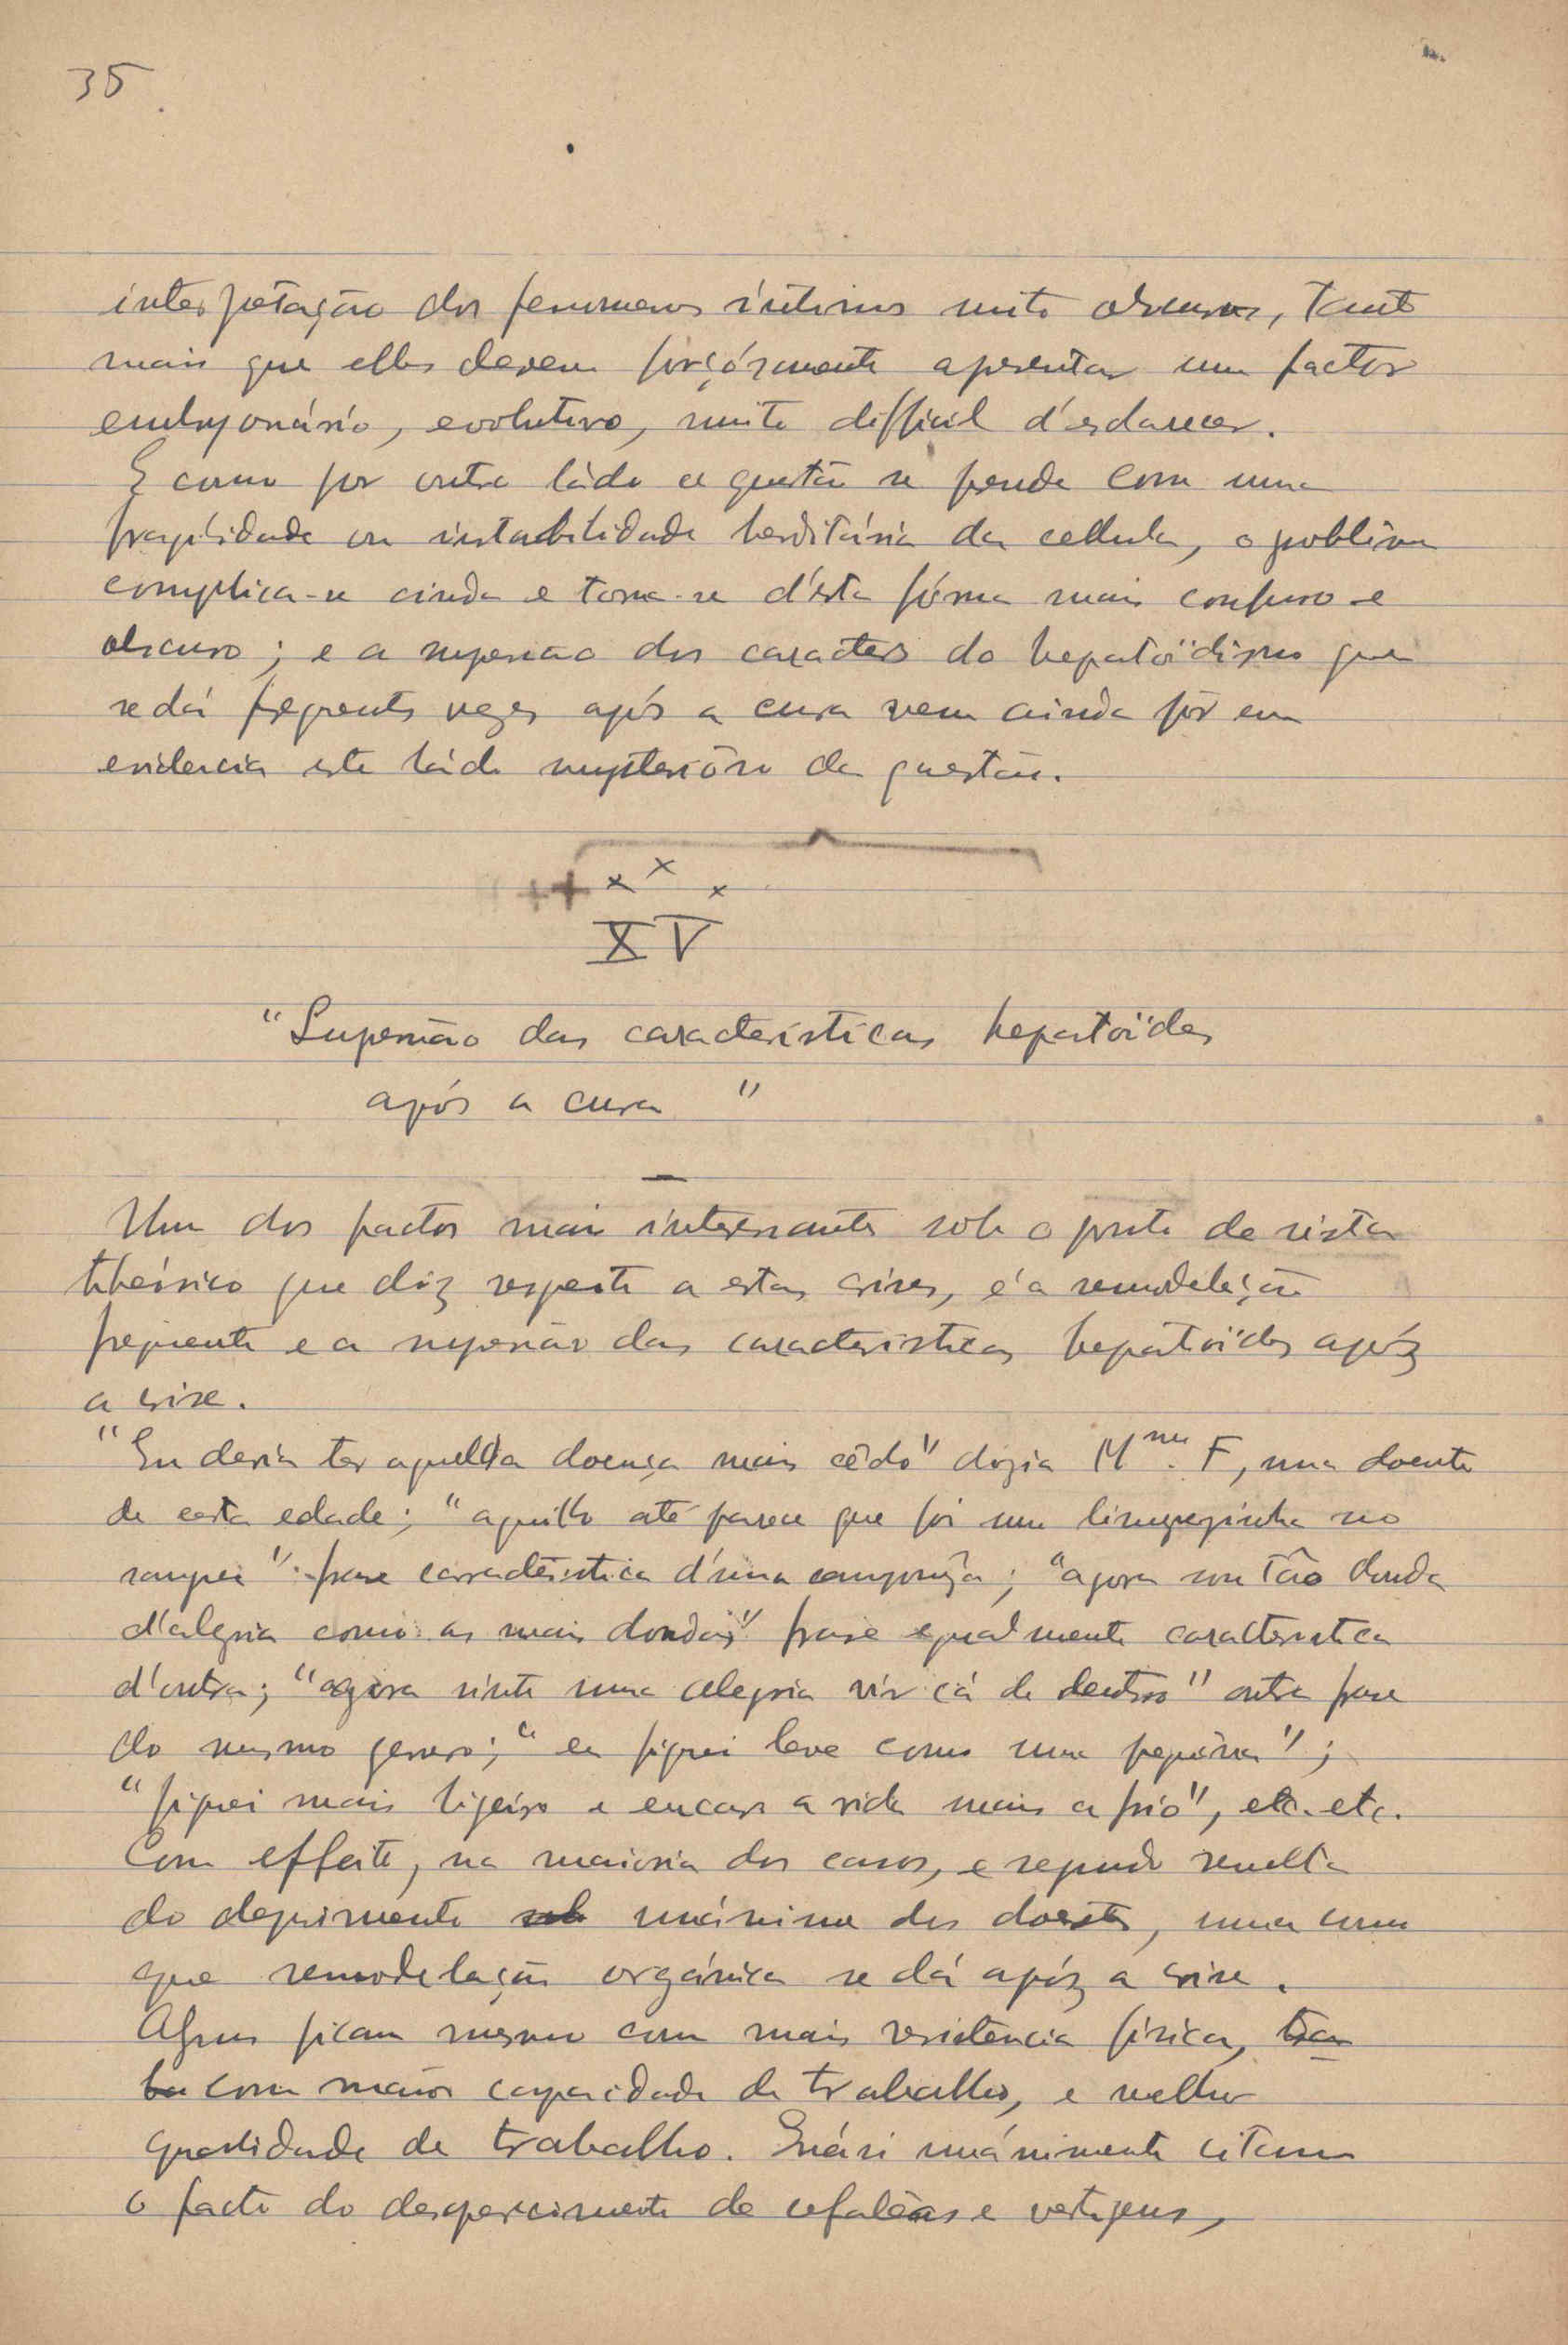 35
interpretação dos fenomenos íntimos muito obscuros, tanto
mais que elles devem forçósamente apresentar um factor
embryonário, evolutivo, muito difficil d'esclarecer.
E como por outro ládo a questão se prende com uma
fragilidade ou instabilidade herditária da cellula, o problêma
complica-se ainda e torna-se d'ésta fórma mais confuso e
obscuro; e a supersão dos caracters do hepatoïdismo que
se dá freqüents vezes após a cura vem ainda pôr em
evidencia este ládo mysteriôso da questão.
XV
"Supersão das características hepatoïdes
após a cura"
Um dos factos mais interessantes sob o ponto de vista
theórico que diz respeito a estas crises, é a remodelação
frequente e a supersão das caracteristicas hepatoïdes após
a crise.
"Eu devia ter aquella doença mais cêdo" dizia Mme. F, uma doente
de certa edade; "aquillo até parece que foi uma limpezinha no
sangue" frase carracteristica d'uma camponêza; "agora sou tão douda
d'alegria como as mais doudas" frase egualmente caracteristica
d'outra; "agora sinto uma alegria vir cá de dentro" outra frase
do mesmo genero; "eu fiquei leve como uma";
"fiquei mais ligeiro e encaro a vida mais a frio", etc. etc.
Com effeito, na maioria dos casos, e segundo resulta
do depoimento unánime dos doentes, uma como
que remodelação orgánica se dá após a crise.
Alguns ficam mesmo com mais resistencia física,
com maior capacidade de trabalho, e melhor
qualidade de trabalho. Quási unánimente citam
o facto do desaparecimento de cefalêas e vertigens,